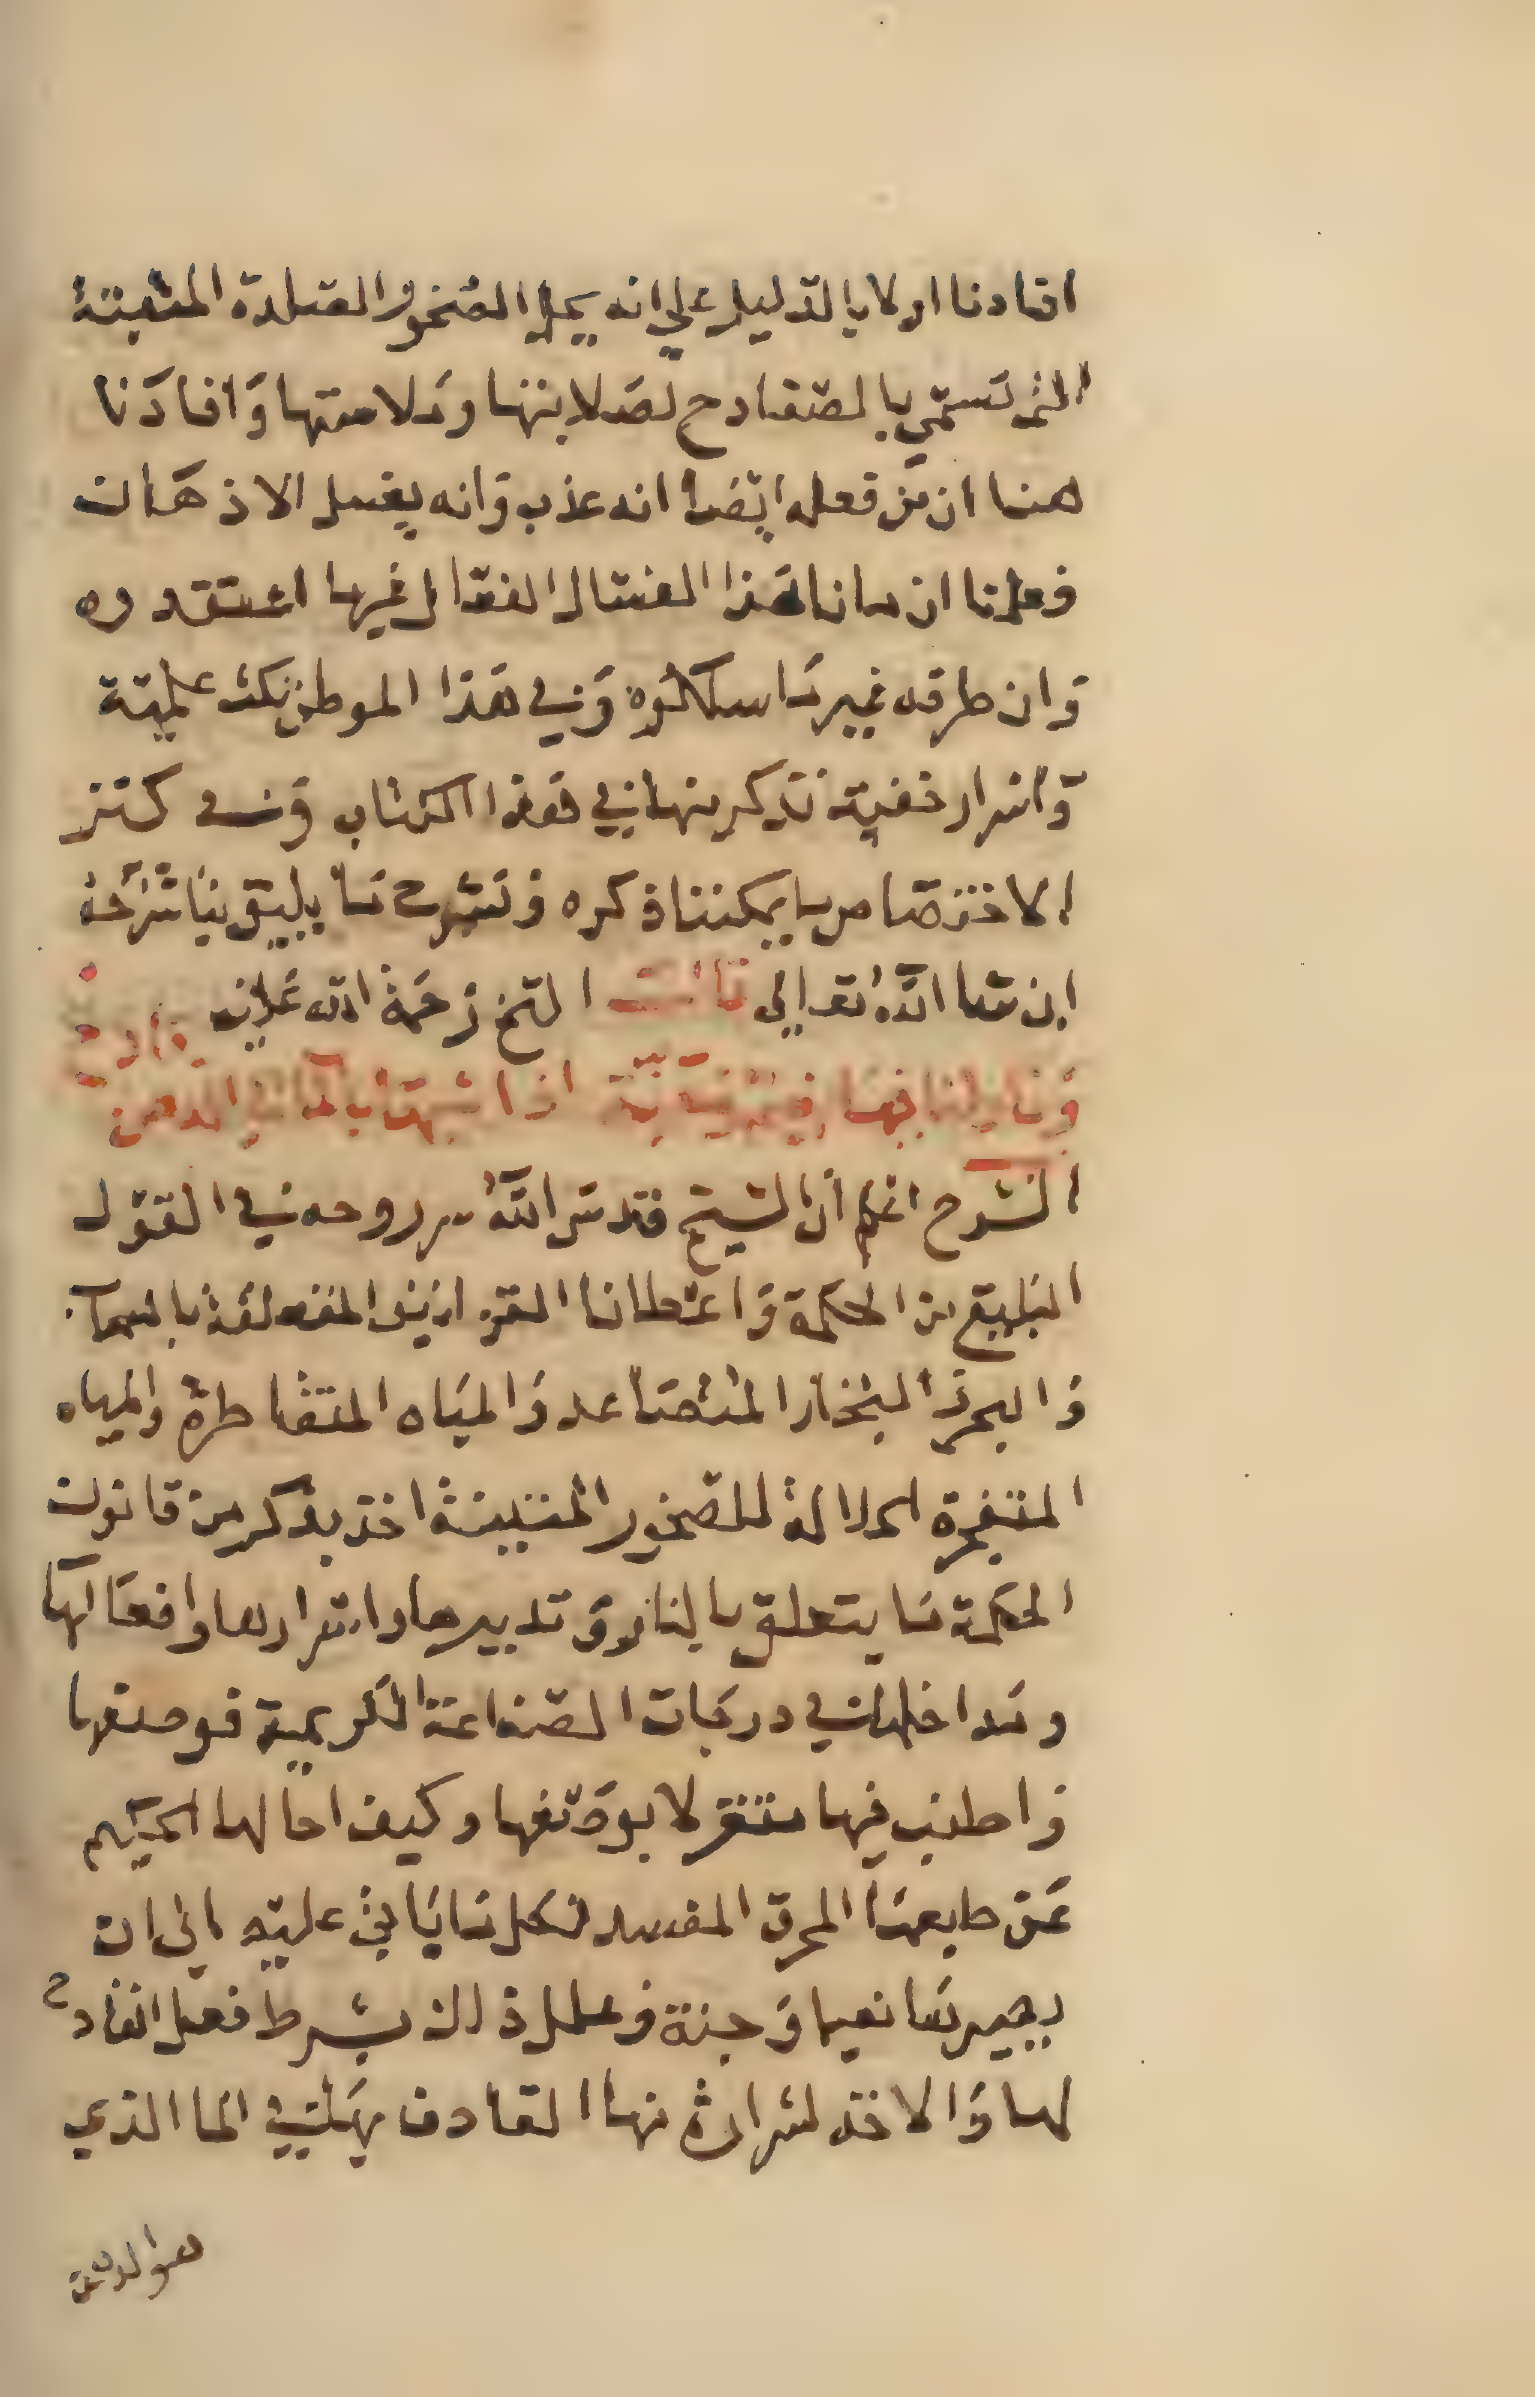 افادنا اولا بالدليل علي انه يحل الصخور الصلدة المثبتة
التي تسمي بالصفادح لصلابتها وملاستها وافادنا
هنا ان من فعله ايضا انه عذب وانه يغسل الادهان
فعلمنا ان ماناهذا الغسال الفعال غيرما اعتقدوه
وان طرقه غير ما سلكوه وفي هذا الموطن نكت علمية
واسرار خفية نذكر منها في هذا الكتاب وفي كنز
الاختصاص ما يمكننا ذكره ونشرح ما يليق بنا شرحه
ان شا الله تعالي قال الشيخ رحمة الله عليه
اذا شبهتاب ما في الدهن
الشرح اعلم ان الشيخ قدس الله سر روحه في القول
البليغ من الحكمة واعطانا القوانين المتعلقة بالسما
والبحر والبخار المتصاعد والمياه المتقاطرة والمياه
المتفجرة الحلالة للصخور المتينة اخذ يذكر من قانون
الحكمة ما يتعلق بالنار وتدبيرها واسرارها وافعالها
ومداخلها في درجات الصناعة الكريمة فوصفها
واطنب فيها متغزلا بوصفها وكيف احالها الحكيم
عن طبعها المحرق المفسد لكل ما ياتي عليه الى ان
يصير بها نعيما وجنة وعلل ذلك بشرط فعل القادح
لها والاخذ لشرارة منها القادف بها في الما الذي
هو الدهن